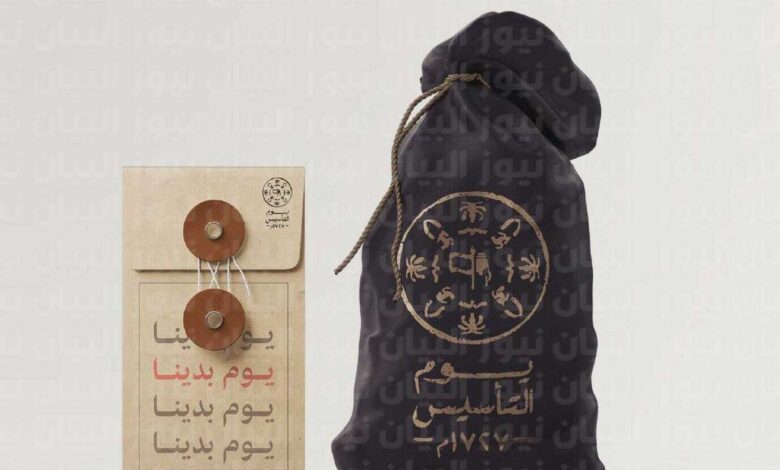 يوم
التأسيس
١٧٢٧م
يوم بدينا
يوم بدينا
يوم بدينا
يوم بدينا
يوم
التأسيس
١٧٢٧م
البيان نيوز